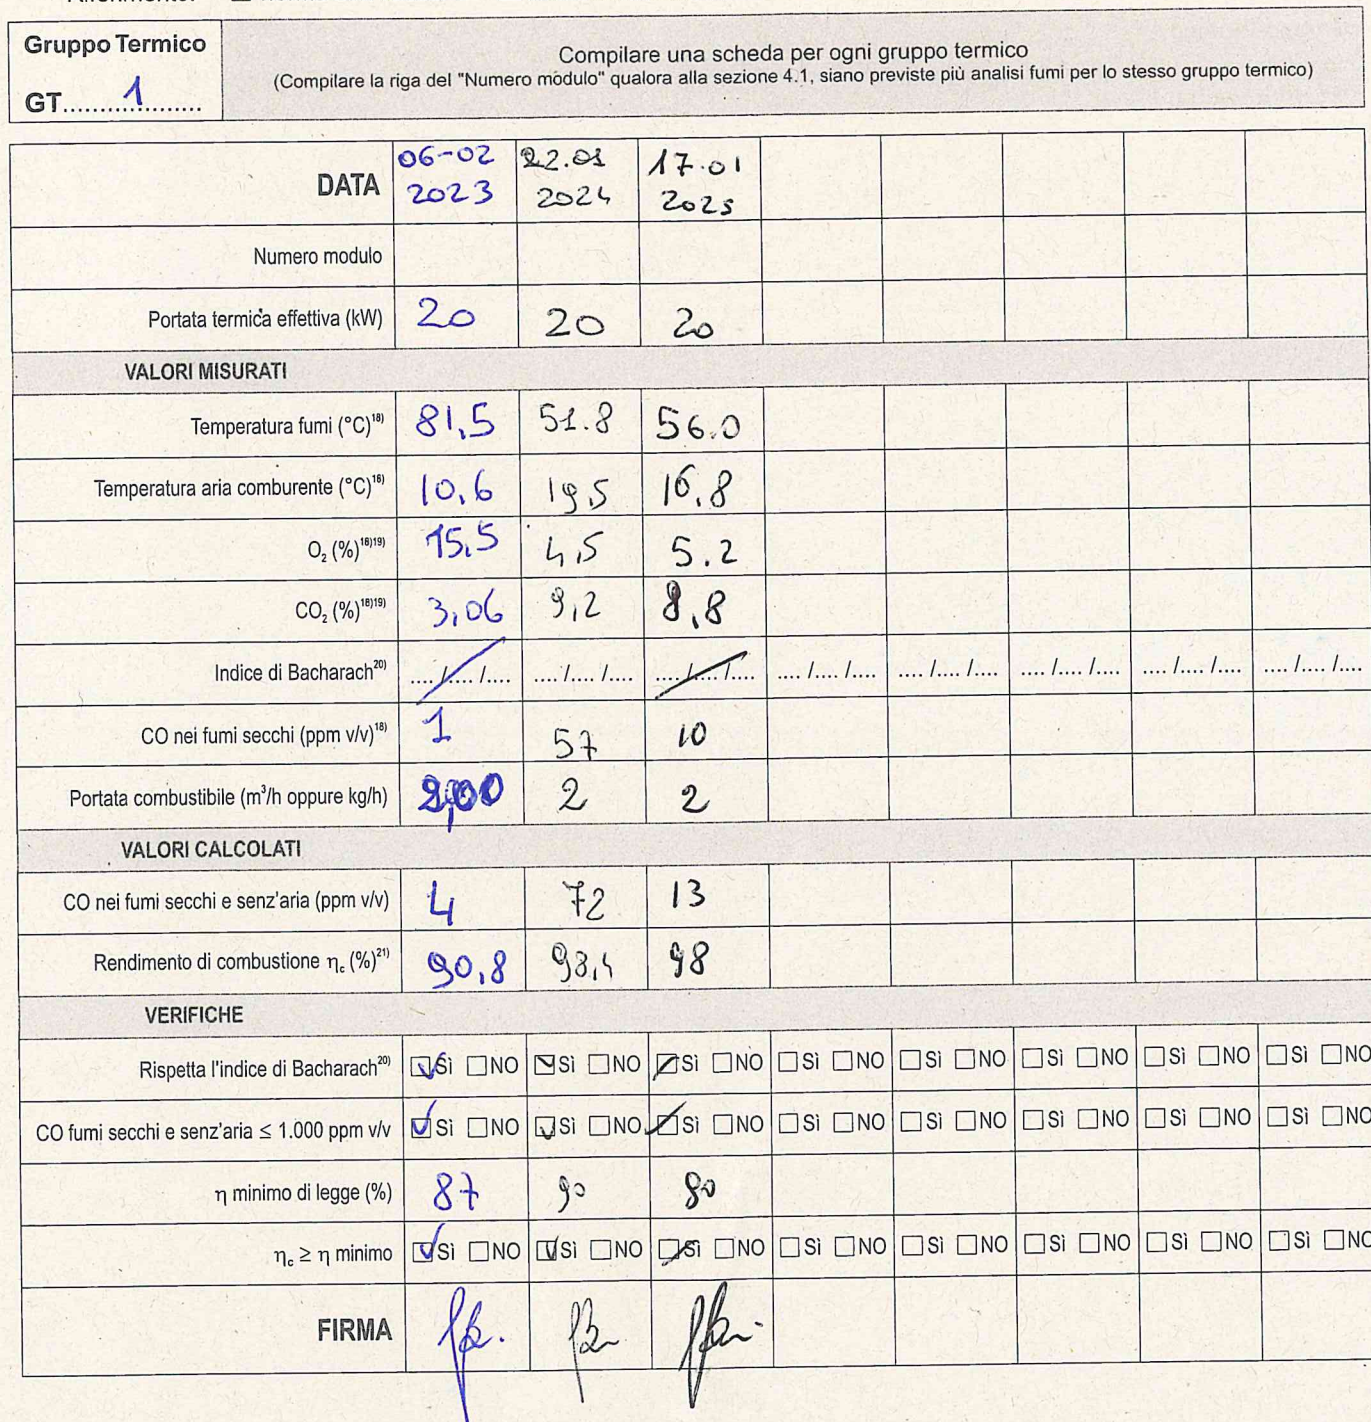 Gruppo Termico
GT...1...
Compilare una scheda per ogni gruppo termico
(Compilare la riga del "Numero modulo" qualora alla sezione 4.1, siano previste più analisi fumi per lo stesso gruppo termico)
DATA 06-02 2023 22.01 2024 17.01 2025
Numero modulo
Portata termica effettiva (kW) 20 20 20
VALORI MISURATI
Temperatura fumi (°C)18) 81,5 51.8 56.0
Temperatura aria comburente (°C)18) 10,6 19,5 16,8
O2 (%)18)19) 15,5 4,5 5.2
CO2 (%)18)19) 3,06 9,2 8,8
Indice di Bacharach20) .... /.... /.... .... /.... /.... .... /.... /.... .... /.... /.... .... /.... /.... .... /.... /.... .... /.... /.... .... /.... /....
CO nei fumi secchi (ppm v/v)18) 1 57 10
Portata combustibile (m3/h oppure kg/h) 2,00 2 2
VALORI CALCOLATI
CO nei fumi secchi e senz'aria (ppm v/v) 4 72 13
Rendimento di combustione ηc (%)21) 90,8 98,4 98
VERIFICHE
Rispetta l'indice di Bacharach20) ☑Sì ☐NO ☑Sì ☐NO ☑Sì ☐NO ☐Sì ☐NO ☐Sì ☐NO ☐Sì ☐NO ☐Sì ☐NO ☐Sì ☐NO
CO fumi secchi e senz'aria ≤ 1.000 ppm v/v ☑Sì ☐NO ☑Sì ☐NO ☑Sì ☐NO ☐Sì ☐NO ☐Sì ☐NO ☐Sì ☐NO ☐Sì ☐NO ☐Sì ☐NO
η minimo di legge (%) 87 90 90
ηc ≥ η minimo ☑Sì ☐NO ☑Sì ☐NO ☑Sì ☐NO ☐Sì ☐NO ☐Sì ☐NO ☐Sì ☐NO ☐Sì ☐NO ☐Sì ☐NO
FIRMA